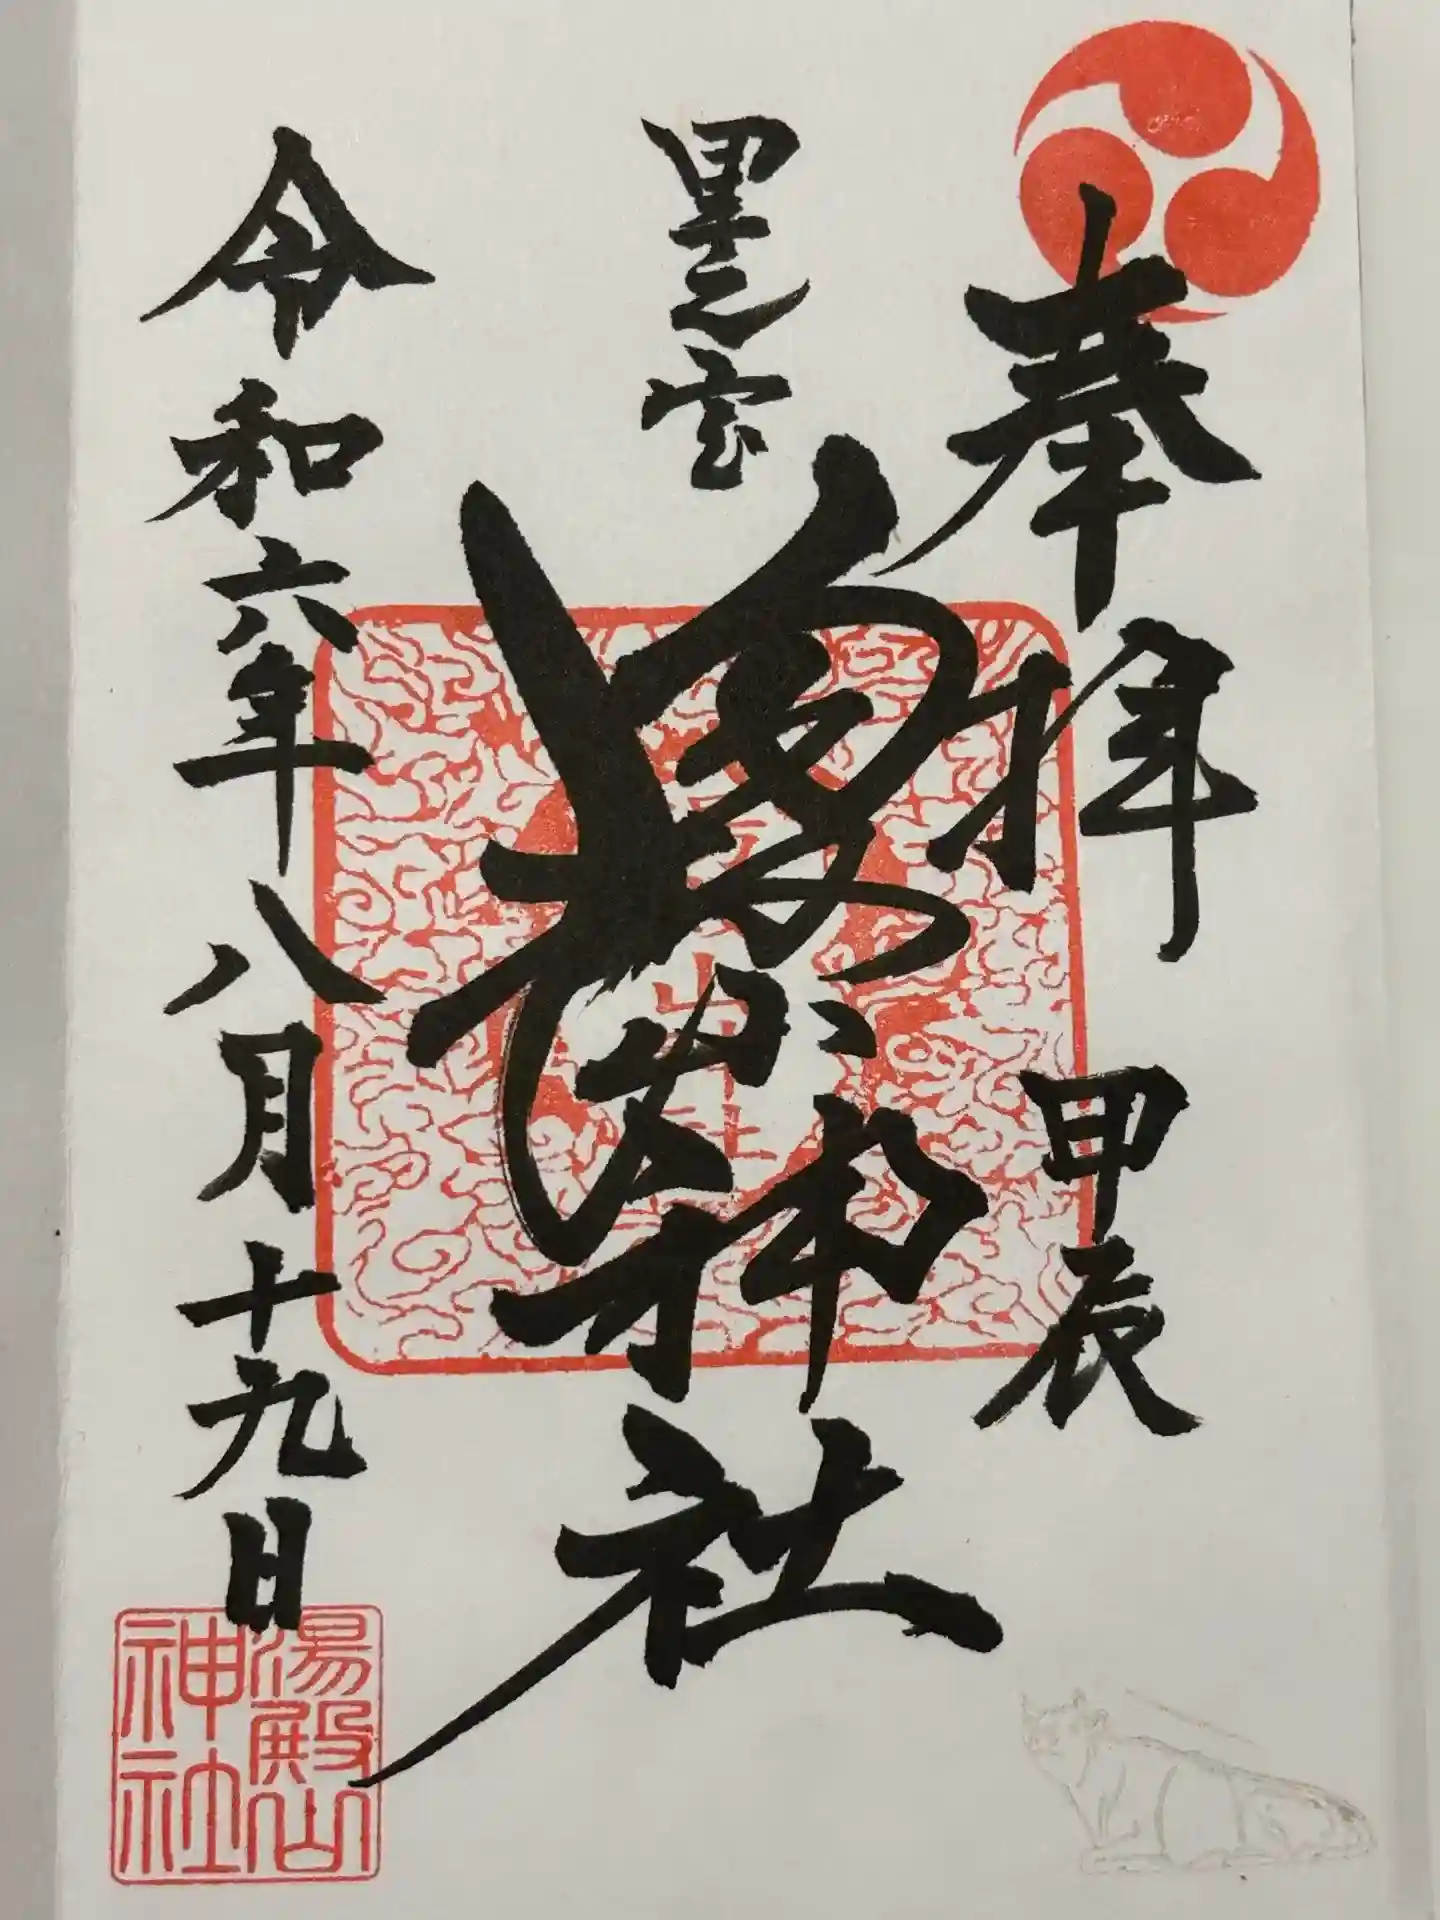 奉拝
甲辰
湯殿山神社
令和六年八月十九日
湯殿山
神社